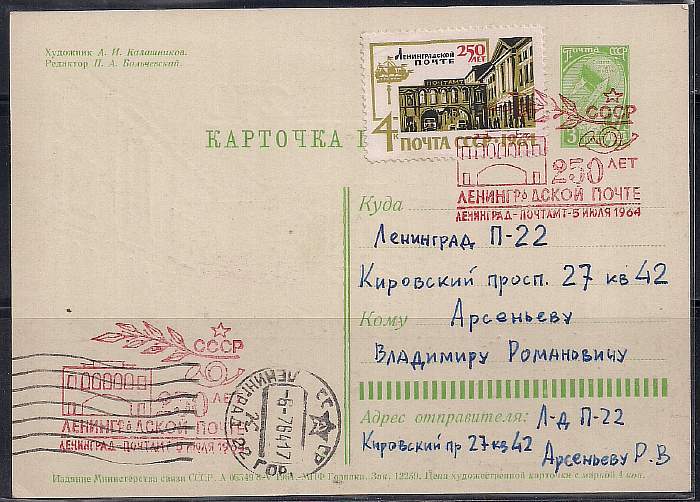 Художник А. И. Калашников.
Редактор П. А. Больчевский.
ЛЕНИНГРАДСКОЙ
ПОЧТЕ
250
ЛЕТ
ПОЧТАМТ
4К
ПОЧТА СССР·1964
ПОЧТА СССР
3
КАРТОЧКА
СССР
250 ЛЕТ
ЛЕНИНГРАДСКОЙ ПОЧТЕ
ЛЕНИНГРАД-ПОЧТАМТ-5 ИЮЛЯ 1964
Куда
Ленинград П-22
Кировский просп. 27 кв 42
Кому Арсеньеву
Владимиру Романовичу
Адрес отправителя: Л-д П-22
Кировский пр 27 кв 42
Арсеньеву Р.В
СССР
250 ЛЕТ
ЛЕНИНГРАДСКОЙ ПОЧТЕ
ЛЕНИНГРАД-ПОЧТАМТ-5 ИЮЛЯ 1964
ЛЕНИНГРАД 22
-6-7-64-17
ГОР
Издание Министерства связи СССР. МПФ Гознака. Зак. Цена художественной карточки с маркой 4 коп.